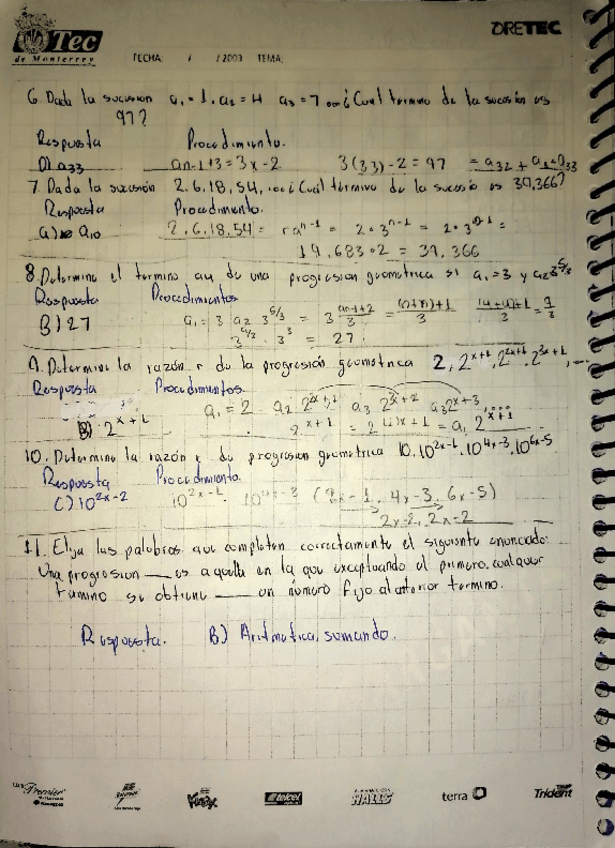 Tec
de Monterrey
PRETEC
FECHA: / /2003 TEMA:
6. Dada la sucesion a₁=1, a₂=4 a₃=7 ... ¿Cual termino de la sucesion es
97?
Respuesta Procedimiento.
D) a33 an-1+3=3x-2 3(33)-2=97
7. Dada la sucesión 2,6,18,54,... ¿Cual término de la sucesio es 39,366?
Respuesta Procedimento.
a) a₁₀ 2,6,18,54 = ra^n-1 = 2·3^n-1 = 2·3^10-1 =
19,683·2 = 39,366
8. Determine el termino a4 de una progresion geometrica si a₁=3 y a₂ 3^5/3
Respuesta Procedimientos
B) 27 a₁=3 a₂ 3^5/3
3³ = 27
9. Determine la razón r de la progresión geometrica 2, 2^x+1, 2^2x+1, 2^3x+1, ...
Respuesta Procedimentos.
B) 2^x+1
10. Determine la razón r de progresion geometrica 10, 10^2x-1, 10^4x-3, 10^6x-5
Respuesta Procedimento.
C) 10^2x-2 10^2x-1 10^4x-3 (2x-1, 4x-3, 6x-5)
2x-2, 2x-2
11. Elija las palabras que completen correctamente el siguiente enunciado:
Una progresion ___ es aquella en la que exceptuando el primero, cualquier
termino se obtiene ___ un número fijo al anterior termino.
Respuesta. B) Aritmetica, sumando.
Premier
telcel
HALLS
terra
Trident